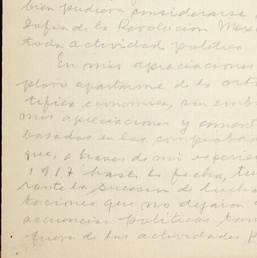 bien pudiera considerarse
sofía de la Revolucion Mex
toda actividad politica
En mis apreciaciones
ploro apartarme de la orto
tifica economica, sin emb
mis apreciaciones y coment
basadas en las comproban
que, a traves de mi experien
1917 hasta la fecha, tu
rante la sucesion de lucha
taciones que no dejaron
secuencias politicas tam
fuera de las actividades p